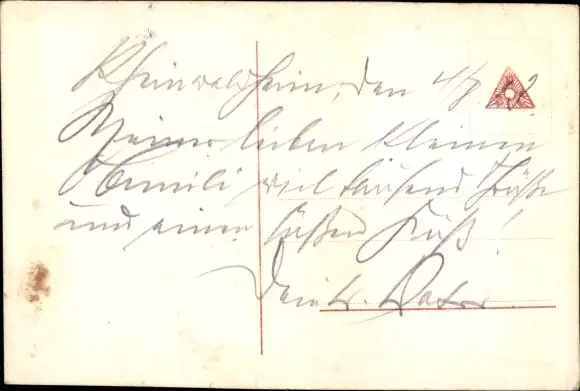 Rheinwaldheim, den 4/8
Meiner lieben kleinen
Emili viel tausend Grüße
und einen süßen Kuß!
Dein tr. Vater.